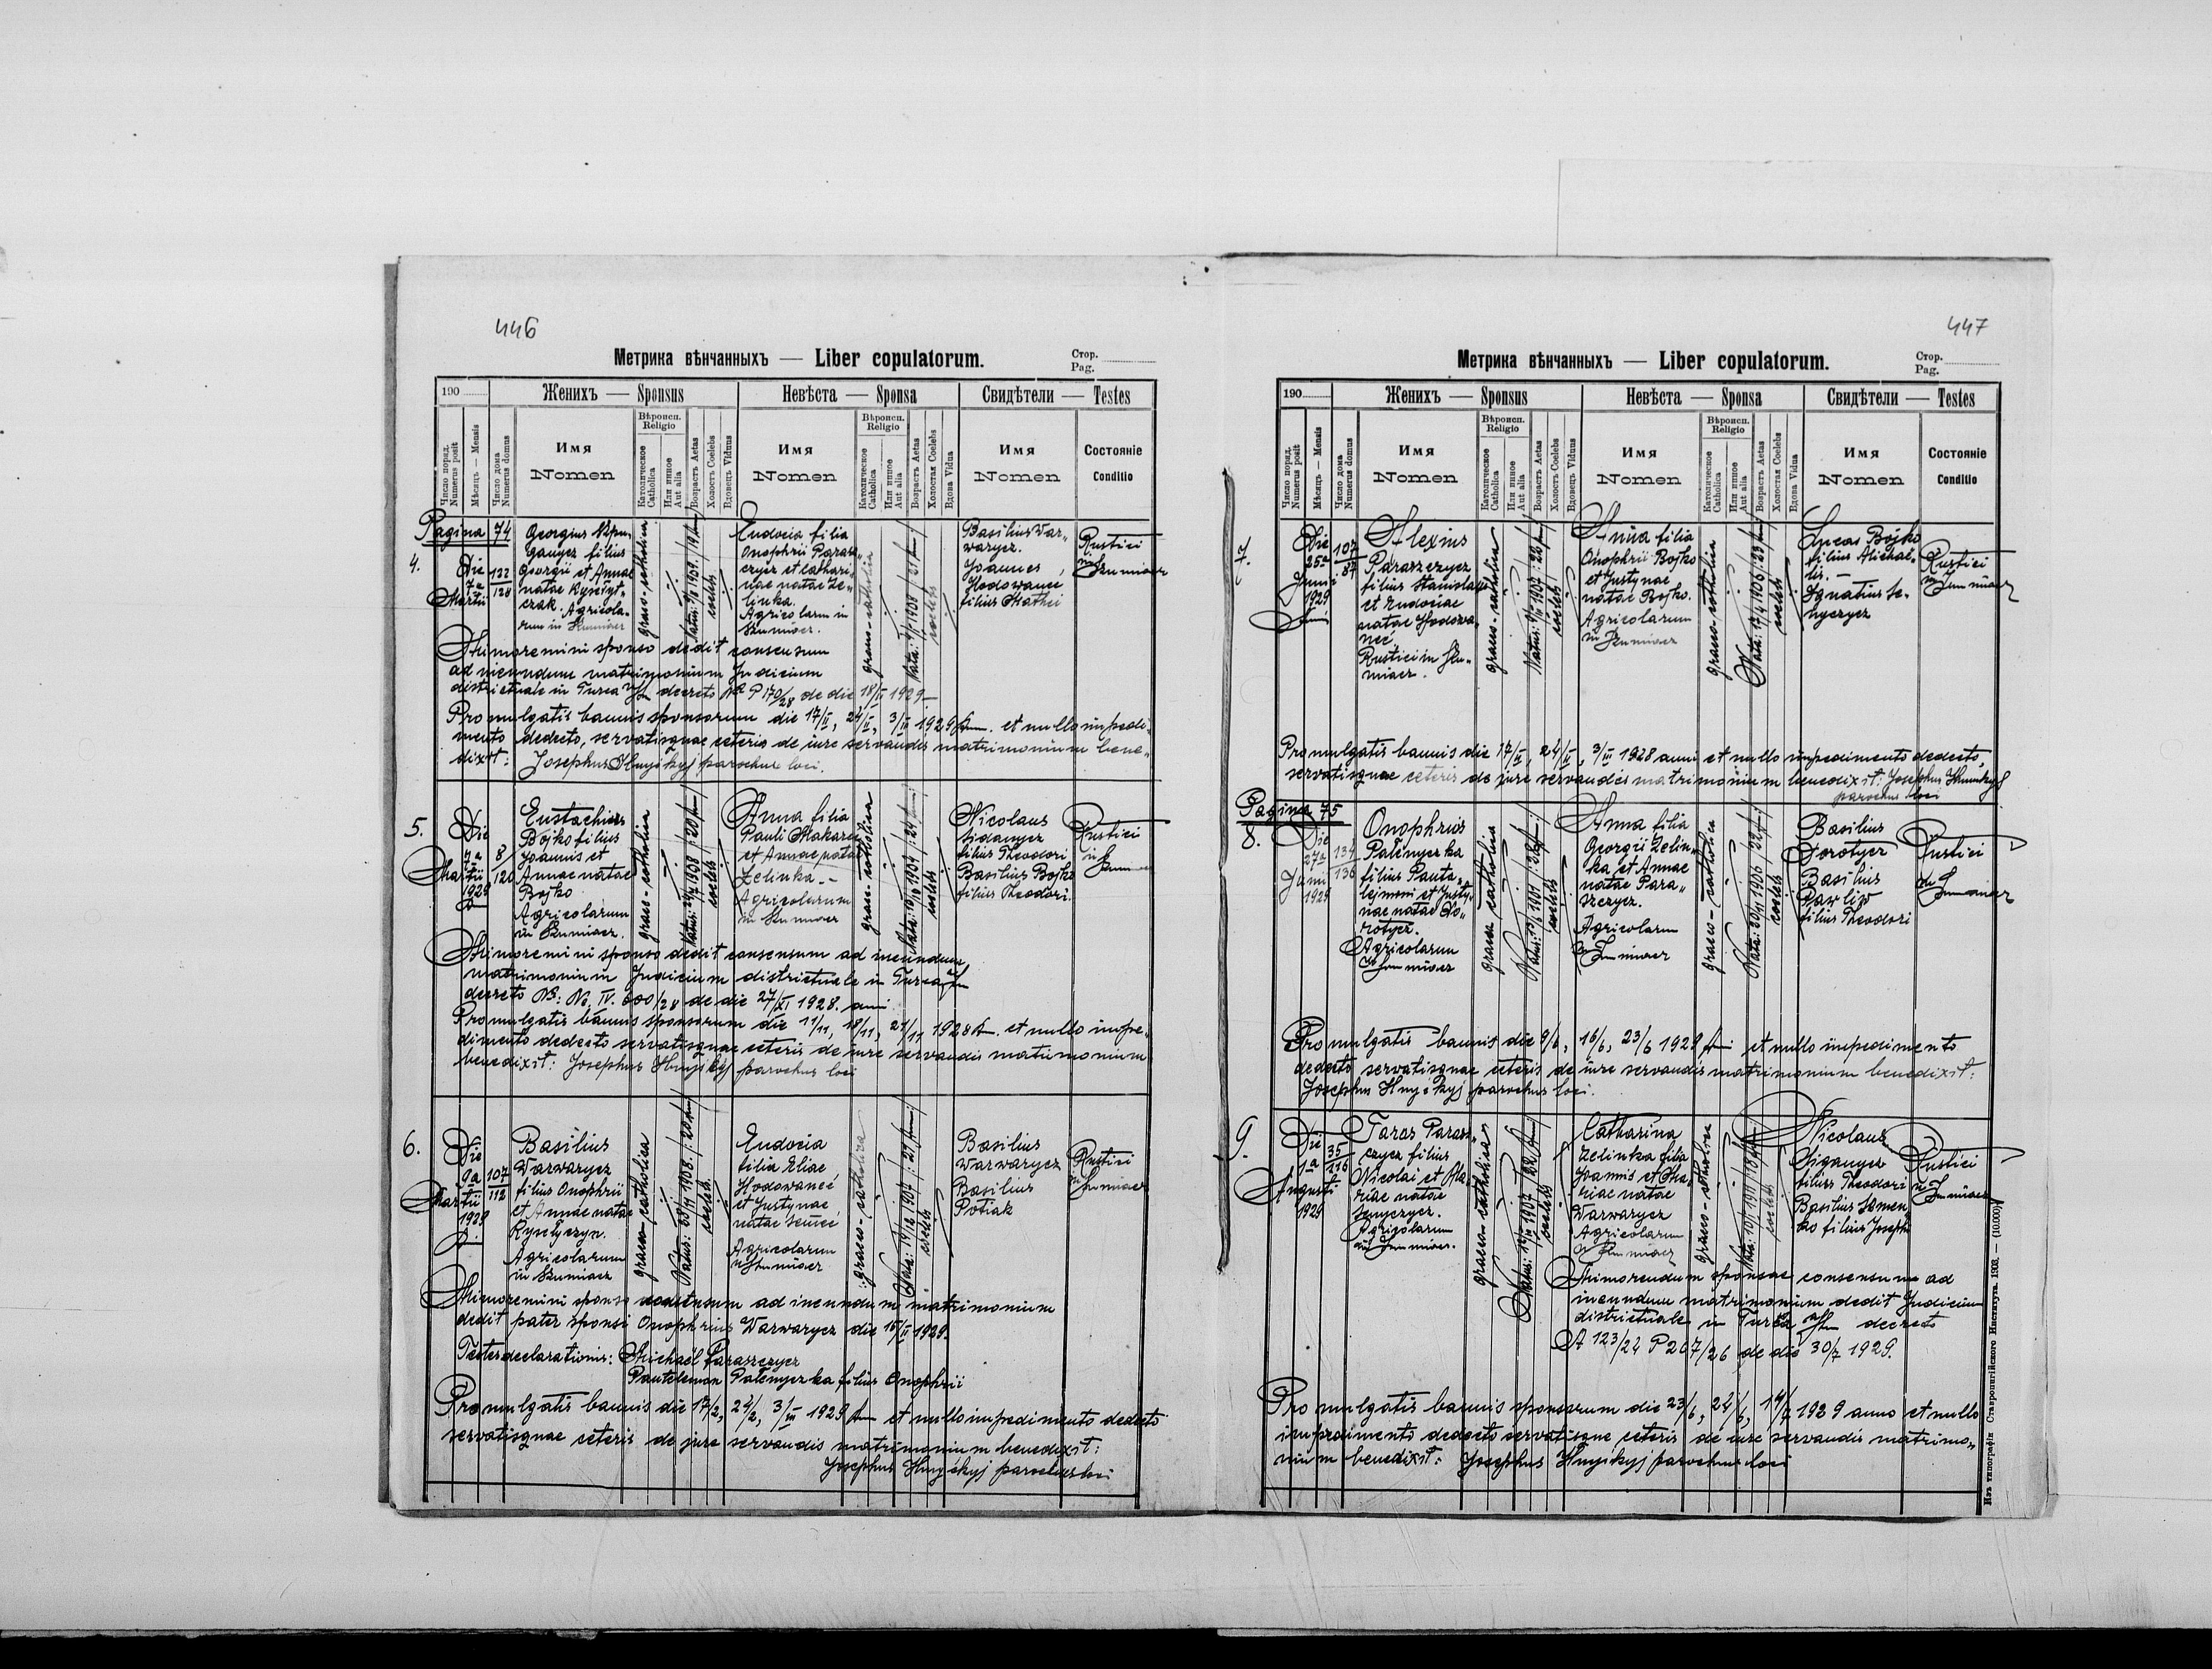 446
Метрика вѣнчанныхъ — Liber copulatorum.
Стор.
Pag.
190
Женихъ — Sponsus
Невѣста — Sponsa
Свидѣтели — Testes
Число поряд.
Numerus posit
Мѣсяцъ — Mensis
Число дома
Numerus domus
Имя
Nomen
Вѣроисп.
Religio
Католическое
Catholica
Или инное
Aut alia
Возрастъ Aetas
Холостъ Coelebs
Вдовецъ Viduus
Имя
Nomen
Вѣроисп.
Religio
Католическое
Catholica
Или инное
Aut alia
Возрастъ Aetas
Холостая Coelebs
Вдова Vidua
Имя
Nomen
Состояніе
Conditio
Pagina 74
4.
Die
7a
Martii
122
128
Georgius
filius
Georgii et Annae
natae
czak. Agricola-
rum in
graeco-catholica
coelebs
Eudocia filia
Onophrii Parasz-
czycz et Cathari-
nae natae Ze-
linka.
Agricolarum in
graeco-catholica
coelebs
Basilius War-
warycz.
Joannes
Hodowanec
filius Mathei
Rustici
in
Minorenni sponso dedit consensum
ad ineundum matrimonium Judicium
districtuale in Turca decreto P 170/28 de die 18/II 1929
Promulgatis bannis sponsorum die 17/II, 24/II, 3/III 1929 et nullo impedi-
mento dedecto, servatisque ceteris de iure servandis matrimonium bene-
dixit: Josephus parochus loci.
5.
Die
7a
Martii
1929
8
120
Eustachius
Bojko filius
Joannis et
Annae natae
Bojko
Agricolarum
in
graeco-catholica
coelebs
Anna filia
Pauli
et Annae natae
Zelinka.-
Agricolarum
in
graeco-catholica
coelebs
Nicolaus
filius Theodori
Basilius Bojko
filius Theodori.
Rustici
in
Minorenni sponso dedit consensum ad ineundum
matrimonium Judicium districtuale in Turca
decreto IV. 600/28 de die 27/XI 1928.
Promulgatis bannis sponsorum die 11/11, 18/11, 21/11 1928 et nullo impe-
dimento dedecto servatisque ceteris de iure servandis matrimonium
benedixit: Josephus parochus loci
6.
Die
Martii
1929
107
112
Basilius
Warwarycz
filius Onophrii
et Annae natae
Agricolarum
in
graeco-catholica
coelebs
Eudocia
filia Eliae
Hodowanec
et Justynae
natae
Agricolarum
graeco-catholica
coelebs
Basilius
Warwarycz
Basilius
Potiak
Rustici
in
Minorenni sponso consensum ad ineundum matrimonium
dedit pater sponsi Onophrius Warwarycz die 15/II 1929.
Testes declarationis: Michaël Paraszczycz
Panteleimon Patenyczka filius Onophrii
Promulgatis bannis die 17/2, 24/2, 3/III 1929 et nullo impedimento dedecto
servatisque ceteris de jure servandis matrimonium benedixit:
Josephus parochus loci
447
Метрика вѣнчанныхъ — Liber copulatorum.
Стор.
Pag.
190
Женихъ — Sponsus
Невѣста — Sponsa
Свидѣтели — Testes
Число поряд.
Numerus posit
Мѣсяцъ — Mensis
Число дома
Numerus domus
Имя
Nomen
Вѣроисп.
Religio
Католическое
Catholica
Или инное
Aut alia
Возрастъ Aetas
Холостъ Coelebs
Вдовецъ Viduus
Имя
Nomen
Вѣроисп.
Religio
Католическое
Catholica
Или инное
Aut alia
Возрастъ Aetas
Холостая Coelebs
Вдова Vidua
Имя
Nomen
Состояніе
Conditio
7.
Die
25a
Junii
1929
107
87
Alexius
Paraszczycz
filius Stanislai
et Eudociae
natae Hodowa-
nec
Rustici in
graeco-catholica
coelebs
Anna filia
Onophrii Bojko
et Justynae
natae Bojko.
Agricolarum
in
graeco-catholica
coelebs
Lucas Bojko
filius Michae-
lis.-
Ignatius Se-
nyczycz
Rustici
in
Promulgatis bannis die 17/II, 24/II, 3/III 1928 anni et nullo impedimento dedecto,
servatisque ceteris de jure servandis matrimonium benedixit: Josephus
parochus loci
Pagina 75
8.
Die
27a
Junii
1929
134
136
Onophrius
Patenyczka
filius Panta-
lejmoni et Justy-
nae natae Do-
rotycz.
Agricolarum
graeco catholica
coelebs
Anna filia
Georgii Zelin-
ka et Annae
natae Para-
szczycz.
Agricolarum
graeco-catholica
coelebs
Basilius
Dorotycz
Basilius
Pawliw
filius Theodori
Rustici
Promulgatis bannis die 9/6, 16/6, 23/6 1929 et nullo impedimento
dedecto servatisque ceteris de iure servandis matrimonium benedixit:
Josephus parochus loci.
9.
Die
1a
Augusti
1929
35
116
Taras Parasz-
czycz filius
Nicolai et Ma-
riae natae
Senyczycz.
Agricolarum
graeco-catholica
coelebs
Catharina
Zelinka filia
Joannis et Ma-
riae natae
Warwarycz
Agricolarum
graeco-catholica
coelebs
Nicolaus
filius Theodori
Basilius Semen-
ko filius Josephi
Rustici
in
sponsae consensum ad
ineundum matrimonium dedit Judicium
districtuale in Turka decreto
A 123/24 P 207/26 de die 30/7 1929.
Promulgatis bannis sponsorum die 23/6, 24/6, 14/7 1929 anno et nullo
impedimento dedecto servatisque ceteris de iure servandis matrimo-
nium benedixit: Josephus parochus loci
Изъ типографіи Ставропигійского Института. 1903. — (10.000)